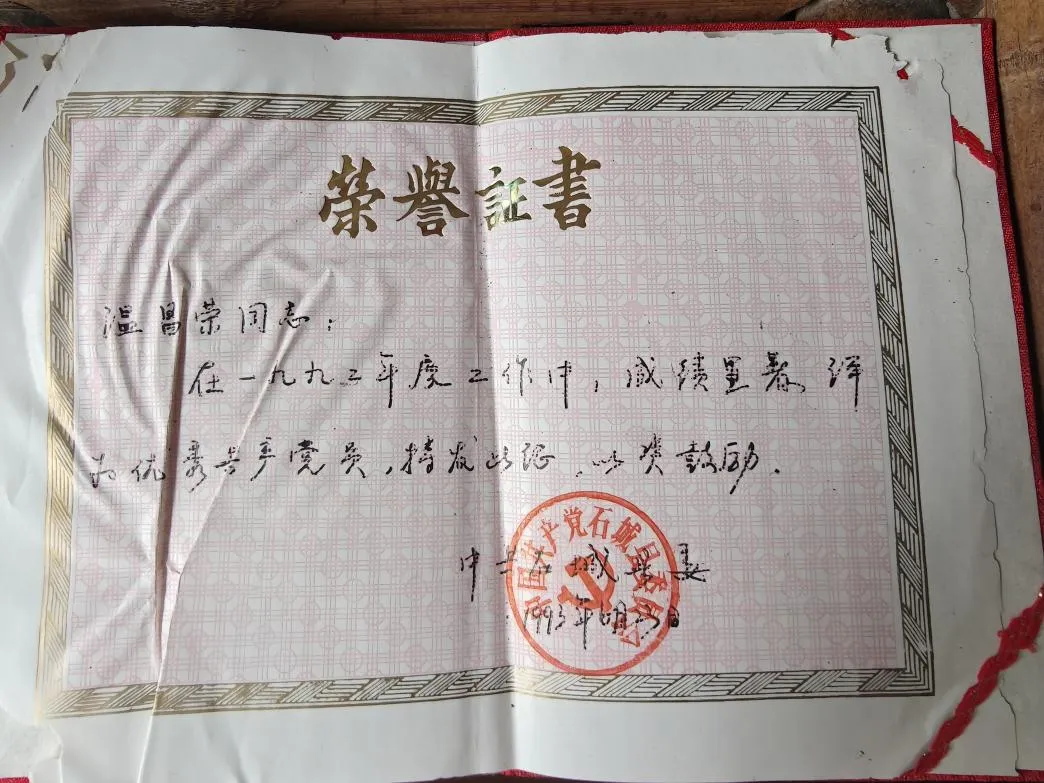 荣譽証書
温昌荣同志：
在一九九二年度工作中，成绩显著，评
为优秀共产党员，特发此证，以资鼓励。
中共石城县委
中国共产党石城县委员会
1993年 月25日